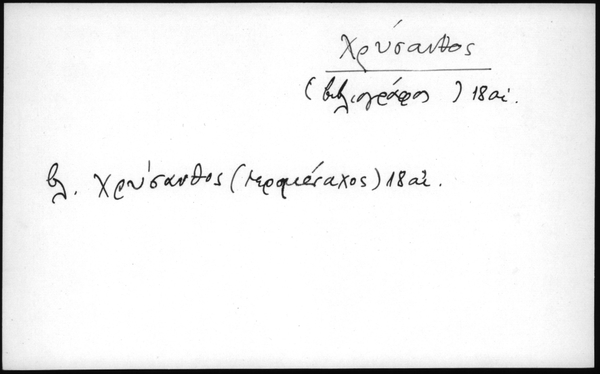 Χρύσανθος
(βιβλιογράφος) 18 αι.
βλ. Χρύσανθος (ιερομόναχος) 18 αι.